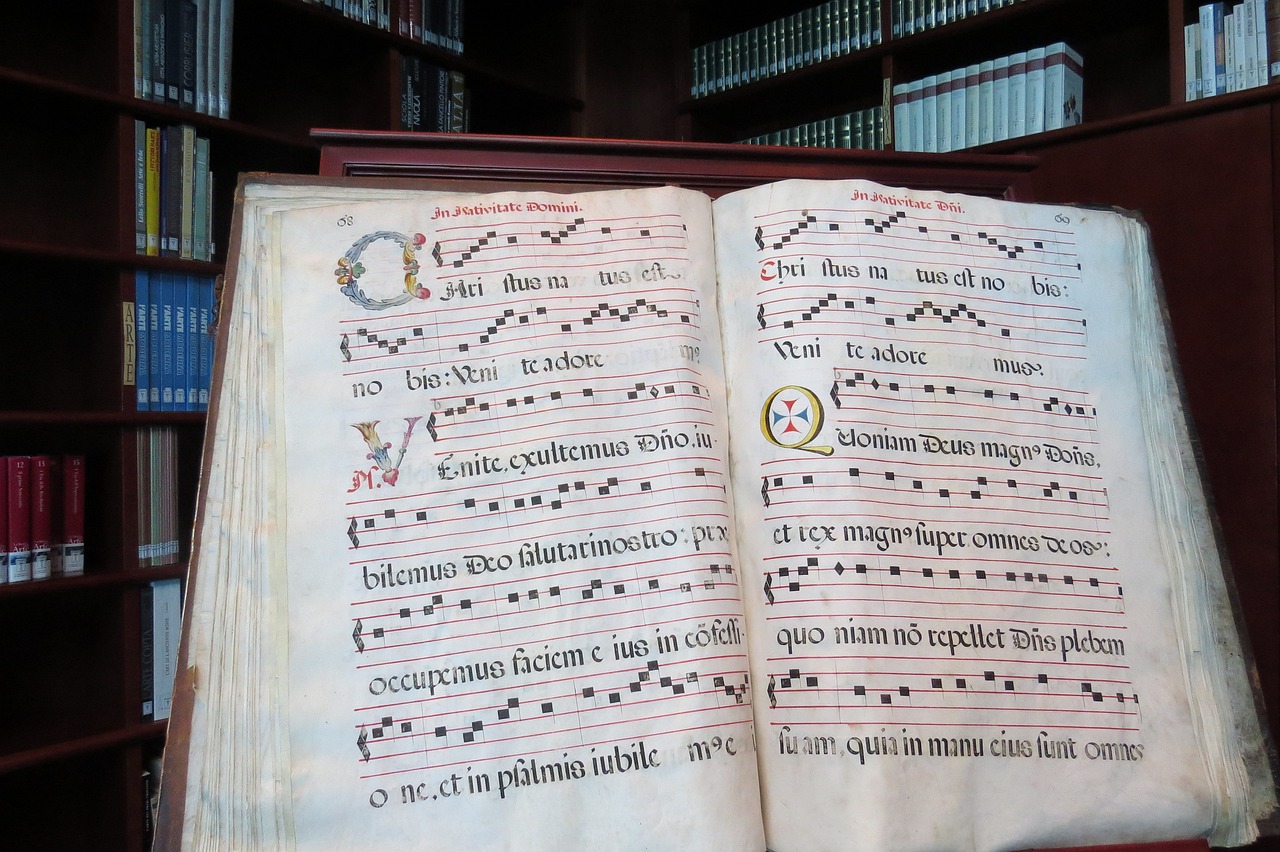 68
In Nativitate Domini.
CHri stus na tus est
no bis: Veni te adore m⁹
Ps. VEnite, exultemus Dño, iu-
bilemus Deo salutari nostro: præ
occupemus faciem e ius in cõfessi-
o ne, et in psalmis iubile m⁹ e
69
In Nativitate Dñi.
Chri stus na tus est no bis:
Veni te adore mus.
Quoniam Deus magn⁹ Dořs,
et rex magn⁹ super omnes deos:
quo niam nõ repellet Dñs plebem
suam, quia in manu eius sunt omnes
ARTE
L'ARTE
L'ARTE
L'ARTE
L'ARTE
L'ARTE